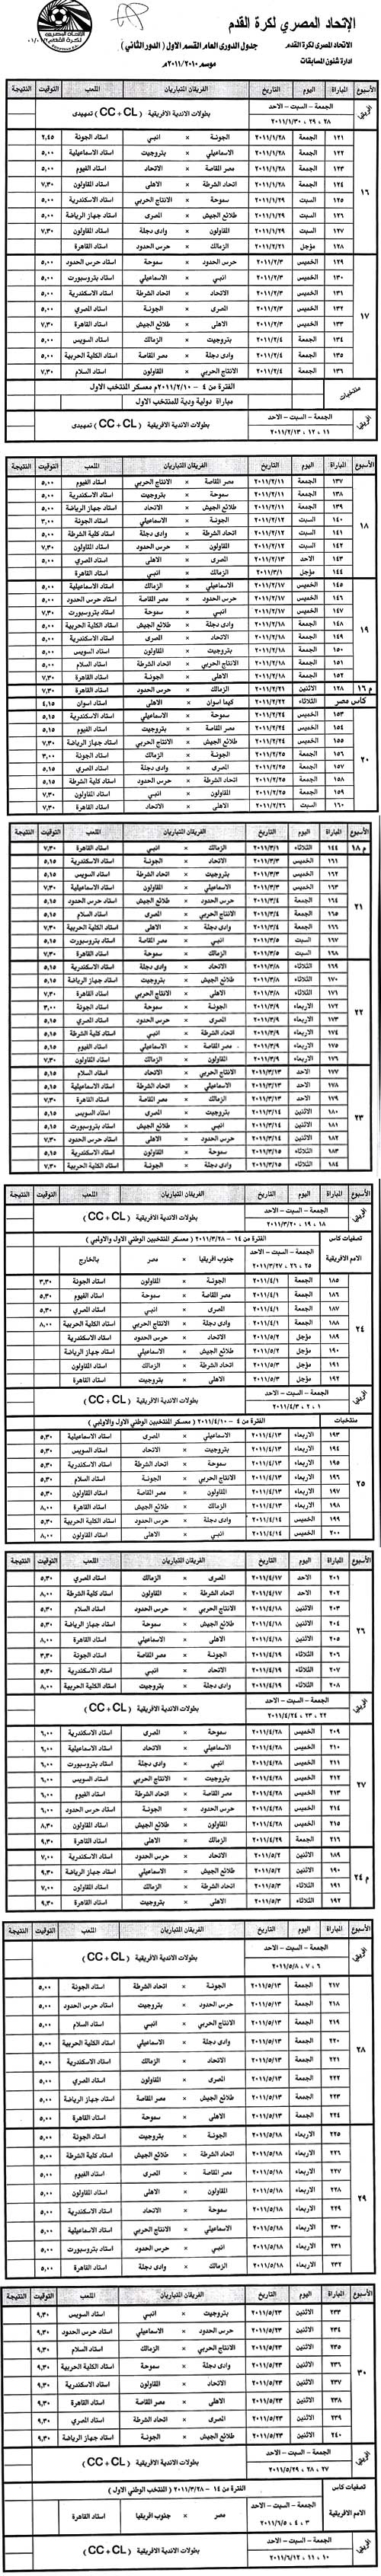 الإتحاد المصري لكرة القدم
الاتحاد المصرى لكرة القدم
جدول الدورى العام القسم الاول (الدور الثاني)
ادارة شئون المسابقات
موسم ٢٠١١/٢٠١٠م
الأسبوع المباراة اليوم التاريخ الفريقان المتباريان الملعب التوقيت النتيجة
الجمعة – السبت – الاحد
بطولات الاندية الافريقية (CC + CL) تمهيدى
٢٨ ، ٢٩ ، ٢٠١١/١/٣٠
١٦
١٢١ الجمعة ٢٠١١/١/٢٨ الجونة × انبي استاد الجونة ٢,٤٥
١٢٢ الجمعة ٢٠١١/١/٢٨ الاسماعيلي × بتروجيت استاد الاسماعيلية ٥,٠٠
١٢٣ الجمعة ٢٠١١/١/٢٨ مصر المقاصة × الاتحاد استاد الفيوم ٥,٠٠
١٢٤ الجمعة ٢٠١١/١/٢٨ اتحاد الشرطة × الاهلى استاد المقاولون ٧,٣٠
١٢٥ السبت ٢٠١١/١/٢٩ سموحة × الانتاج الحربي استاد الاسكندرية ٥,٠٠
١٢٦ السبت ٢٠١١/١/٢٩ طلائع الجيش × المصرى استاد جهاز الرياضة ٥,٠٠
١٢٧ السبت ٢٠١١/١/٢٩ المقاولون × وادى دجلة استاد المقاولون ٧,٣٠
١٢٨ مؤجل ٢٠١١/٢/٢١ الزمالك × حرس الحدود استاد القاهرة
١٧
١٢٩ الخميس ٢٠١١/٢/٣ حرس الحدود × سموحة استاد حرس الحدود ٥,٠٠
١٣٠ الخميس ٢٠١١/٢/٣ انبي × الاسماعيلي استاد بتروسبورت ٥,٠٠
١٣١ الخميس ٢٠١١/٢/٣ الاتحاد × اتحاد الشرطة استاد الاسكندرية ٥,٠٠
١٣٢ الخميس ٢٠١١/٢/٣ المصرى × الجونة استاد المصري ٥,٠٠
١٣٣ الخميس ٢٠١١/٢/٣ الاهلى × طلائع الجيش استاد القاهرة ٧,٣٠
١٣٤ الجمعة ٢٠١١/٢/٤ بتروجيت × الزمالك استاد السويس ٥,٠٠
١٣٥ الجمعة ٢٠١١/٢/٤ وادى دجلة × مصر المقاصة استاد الكلية الحربية ٥,٠٠
١٣٦ الجمعة ٢٠١١/٢/٤ الانتاج الحربي × المقاولون استاد السلام ٧,٣٠
منتخبات
الفترة من ٤ – ٢٠١١/٢/١٠م معسكر المنتخب الاول
مباراة دولية ودية للمنتخب الاول
الجمعة – السبت – الاحد
بطولات الاندية الافريقية (CC + CL) تمهيدى
١١ ، ١٢ ، ٢٠١١/٢/١٣
الأسبوع المباراة اليوم التاريخ الفريقان المتباريان الملعب التوقيت النتيجة
١٨
١٣٧ الجمعة ٢٠١١/٢/١١ مصر المقاصة × الانتاج الحربي استاد الفيوم ٥,٠٠
١٣٨ الجمعة ٢٠١١/٢/١١ سموحة × بتروجيت استاد الاسكندرية ٥,٠٠
١٣٩ الجمعة ٢٠١١/٢/١١ طلائع الجيش × الاتحاد استاد جهاز الرياضة ٥,٠٠
١٤٠ السبت ٢٠١١/٢/١٢ الجونة × الاسماعيلي استاد الجونة ٣,٠٠
١٤١ السبت ٢٠١١/٢/١٢ اتحاد الشرطة × وادى دجلة استاد كلية الشرطة ٥,٠٠
١٤٢ السبت ٢٠١١/٢/١٢ المقاولون × حرس الحدود استاد المقاولون ٧,٣٠
١٤٣ الاحد ٢٠١١/٢/١٣ المصرى × الاهلى استاد المصري ٥,٠٠
١٤٤ مؤجل ٢٠١١/٣/١ الزمالك × انبي استاد القاهرة
١٩
١٤٥ الخميس ٢٠١١/٢/١٧ الاسماعيلي × الزمالك استاد الاسماعيلية ٥,٠٠
١٤٦ الخميس ٢٠١١/٢/١٧ حرس الحدود × مصر المقاصة استاد حرس الحدود ٥,٠٠
١٤٧ الخميس ٢٠١١/٢/١٧ انبي × سموحة استاد بتروسبورت ٧,٣٠
١٤٨ الجمعة ٢٠١١/٢/١٨ وادى دجلة × طلائع الجيش استاد الكلية الحربية ٥,٠٠
١٤٩ الجمعة ٢٠١١/٢/١٨ الاتحاد × المصرى استاد الاسكندرية ٥,٠٠
١٥٠ الجمعة ٢٠١١/٢/١٨ بتروجيت × المقاولون استاد السويس ٥,٠٠
١٥١ الجمعة ٢٠١١/٢/١٨ الانتاج الحربي × اتحاد الشرطة استاد السلام ٥,٠٠
١٥٢ الجمعة ٢٠١١/٢/١٨ الاهلى × الجونة استاد القاهرة ٧,٣٠
م ١٦ ١٢٨ الاثنين ٢٠١١/٢/٢١ الزمالك × حرس الحدود استاد القاهرة ٧,٣٠
كاس مصر الثلاثاء ٢٠١١/٢/٢٢ كيما اسوان × الاهلى استاد اسوان ٤,١٥
٢٠
١٥٣ الخميس ٢٠١١/٢/٢٤ سموحة × الاسماعيلي استاد الاسكندرية ٥,١٥
١٥٤ الخميس ٢٠١١/٢/٢٤ مصر المقاصة × بتروجيت استاد الفيوم ٥,١٥
١٥٥ الخميس ٢٠١١/٢/٢٤ طلائع الجيش × الانتاج الحربي استاد جهاز الرياضة ٧,٣٠
١٥٦ الجمعة ٢٠١١/٢/٢٥ الجونة × الزمالك استاد الجونة ٣,٠٠
١٥٧ الجمعة ٢٠١١/٢/٢٥ المصرى × وادى دجلة استاد المصري ٥,١٥
١٥٨ الجمعة ٢٠١١/٢/٢٥ اتحاد الشرطة × حرس الحدود استاد كلية الشرطة ٥,١٥
١٥٩ الجمعة ٢٠١١/٢/٢٥ المقاولون × انبي استاد المقاولون ٧,٣٠
١٦٠ السبت ٢٠١١/٢/٢٦ الاهلى × الاتحاد استاد القاهرة ٧,٣٠
الأسبوع المباراة اليوم التاريخ الفريقان المتباريان الملعب التوقيت النتيجة
م ١٨ ١٤٤ الثلاثاء ٢٠١١/٣/١ الزمالك × انبي استاد القاهرة ٧,٣٠
٢١
١٦١ الخميس ٢٠١١/٣/٣ الاتحاد × الجونة استاد الاسكندرية ٥,١٥
١٦٢ الخميس ٢٠١١/٣/٣ بتروجيت × اتحاد الشرطة استاد السويس ٥,١٥
١٦٣ الخميس ٢٠١١/٣/٣ الاسماعيلي × المقاولون استاد الاسماعيلية ٧,٣٠
١٦٤ الجمعة ٢٠١١/٣/٤ حرس الحدود × طلائع الجيش استاد حرس الحدود ٥,١٥
١٦٥ الجمعة ٢٠١١/٣/٤ الانتاج الحربي × المصرى استاد السلام ٥,١٥
١٦٦ الجمعة ٢٠١١/٣/٤ وادى دجلة × الاهلى استاد الكلية الحربية ٧,٣٠
١٦٧ السبت ٢٠١١/٣/٥ انبي × مصر المقاصة استاد بتروسبورت ٥,١٥
١٦٨ السبت ٢٠١١/٣/٥ الزمالك × سموحة استاد القاهرة ٧,٣٠
٢٢
١٦٩ الثلاثاء ٢٠١١/٣/٨ الاتحاد × وادى دجلة استاد الاسكندرية ٥,١٥
١٧٠ الثلاثاء ٢٠١١/٣/٨ طلائع الجيش × بتروجيت استاد جهاز الرياضة ٥,١٥
١٧١ الثلاثاء ٢٠١١/٣/٨ الاهلى × الانتاج الحربي استاد القاهرة ٧,٣٠
١٧٢ الاربعاء ٢٠١١/٣/٩ الجونة × سموحة استاد الجونة ٣,٠٠
١٧٣ الاربعاء ٢٠١١/٣/٩ المصرى × حرس الحدود استاد المصري ٥,١٥
١٧٤ الاربعاء ٢٠١١/٣/٩ اتحاد الشرطة × انبي استاد كلية الشرطة ٥,١٥
١٧٥ الاربعاء ٢٠١١/٣/٩ مصر المقاصة × الاسماعيلي استاد الفيوم ٥,١٥
١٧٦ الاربعاء ٢٠١١/٣/٩ المقاولون × الزمالك استاد المقاولون ٧,٣٠
٢٣
١٧٧ الاحد ٢٠١١/٣/١٣ الانتاج الحربي × الاتحاد استاد السلام ٥,١٥
١٧٨ الاحد ٢٠١١/٣/١٣ الاسماعيلي × اتحاد الشرطة استاد الاسماعيلية ٥,١٥
١٧٩ الاحد ٢٠١١/٣/١٣ الزمالك × مصر المقاصة استاد القاهرة ٧,٣٠
١٨٠ الاثنين ٢٠١١/٣/١٤ بتروجيت × المصرى استاد السويس ٥,١٥
١٨١ الاثنين ٢٠١١/٣/١٤ انبي × طلائع الجيش استاد بتروسبورت ٥,١٥
١٨٢ الاثنين ٢٠١١/٣/١٤ حرس الحدود × الاهلى استاد حرس الحدود ٧,٣٠
١٨٣ الثلاثاء ٢٠١١/٣/١٥ سموحة × المقاولون استاد الاسكندرية ٥,١٥
١٨٤ الثلاثاء ٢٠١١/٣/١٥ وادى دجلة × الجونة استاد الكلية الحربية ٧,٣٠
الأسبوع المباراة اليوم التاريخ الفريقان المتباريان الملعب التوقيت النتيجة
الجمعة – السبت – الاحد
بطولات الاندية الافريقية (CC + CL)
١٨ ، ١٩ ، ٢٠١١/٣/٢٠
تصفيات كاس الامم الافريقية
الفترة من ١٤ – ٢٠١١/٣/٢٨ (معسكر المنتخبين الوطني الاول والاولمبي)
الجمعة – السبت – الاحد
٢٥ ، ٢٦ ، ٢٠١١/٣/٢٧ جنوب افريقيا × مصر بالخارج
٢٤
١٨٥ الجمعة ٢٠١١/٤/١ الجونة × المقاولون استاد الجونة ٣,٣٠
١٨٦ الجمعة ٢٠١١/٤/١ مصر المقاصة × سموحة استاد الفيوم ٥,٣٠
١٨٧ الجمعة ٢٠١١/٤/١ المصرى × انبي استاد المصري ٥,٣٠
١٨٨ الجمعة ٢٠١١/٤/١ وادى دجلة × الانتاج الحربي استاد الكلية الحربية ٨,٠٠
١٨٩ مؤجل ٢٠١١/٥/٢ الاتحاد × حرس الحدود استاد الاسكندرية
١٩٠ مؤجل ٢٠١١/٥/٢ طلائع الجيش × الاسماعيلي استاد جهاز الرياضة
١٩١ مؤجل ٢٠١١/٥/٣ اتحاد الشرطة × الزمالك استاد المقاولون
١٩٢ مؤجل ٢٠١١/٥/٣ الاهلى × بتروجيت استاد القاهرة
الجمعة – السبت – الاحد
بطولات الاندية الافريقية (CC + CL)
١ ، ٢ ، ٢٠١١/٤/٣
منتخبات
الفترة من ٤ – ٢٠١١/٤/١٠ (معسكر المنتخبين الوطني الاول والاولمبي)
٢٥
١٩٣ الاربعاء ٢٠١١/٤/١٣ الاسماعيلي × المصرى استاد الاسماعيلية ٥,٣٠
١٩٤ الاربعاء ٢٠١١/٤/١٣ بتروجيت × الاتحاد استاد السويس ٥,٣٠
١٩٥ الاربعاء ٢٠١١/٤/١٣ سموحة × اتحاد الشرطة استاد الاسكندرية ٥,٣٠
١٩٦ الاربعاء ٢٠١١/٤/١٣ الانتاج الحربي × الجونة استاد السلام ٥,٣٠
١٩٧ الاربعاء ٢٠١١/٤/١٣ المقاولون × مصر المقاصة استاد المقاولون ٥,٣٠
١٩٨ الاربعاء ٢٠١١/٤/١٣ الزمالك × طلائع الجيش استاد القاهرة ٨,٠٠
١٩٩ الخميس ٢٠١١/٤/١٤ وادى دجلة × حرس الحدود استاد الكلية الحربية ٥,٣٠
٢٠٠ الخميس ٢٠١١/٤/١٤ انبي × الاهلى استاد المقاولون ٨,٠٠
الأسبوع المباراة اليوم التاريخ الفريقان المتباريان الملعب التوقيت النتيجة
٢٦
٢٠١ الاحد ٢٠١١/٤/١٧ المصرى × الزمالك استاد المصري ٥,٣٠
٢٠٢ الاحد ٢٠١١/٤/١٧ اتحاد الشرطة × المقاولون استاد كلية الشرطة ٨,٠٠
٢٠٣ الاثنين ٢٠١١/٤/١٨ الانتاج الحربي × حرس الحدود استاد السلام ٥,٣٠
٢٠٤ الاثنين ٢٠١١/٤/١٨ طلائع الجيش × سموحة استاد جهاز الرياضة ٥,٣٠
٢٠٥ الاثنين ٢٠١١/٤/١٨ الاهلى × الاسماعيلي استاد القاهرة ٨,٠٠
٢٠٦ الثلاثاء ٢٠١١/٤/١٩ الجونة × مصر المقاصة استاد الجونة ٣,٣٠
٢٠٧ الثلاثاء ٢٠١١/٤/١٩ الاتحاد × انبي استاد الاسكندرية ٥,٣٠
٢٠٨ الثلاثاء ٢٠١١/٤/١٩ وادى دجلة × بتروجيت استاد الكلية الحربية ٨,٠٠
الجمعة – السبت – الاحد
بطولات الاندية الافريقية (CC + CL)
٢٢ ، ٢٣ ، ٢٠١١/٤/٢٤
٢٧
٢٠٩ الخميس ٢٠١١/٤/٢٨ سموحة × المصرى استاد الاسكندرية ٦,٠٠
٢١٠ الخميس ٢٠١١/٤/٢٨ الاسماعيلي × الاتحاد استاد الاسماعيلية ٦,٠٠
٢١١ الخميس ٢٠١١/٤/٢٨ انبي × وادى دجلة استاد بتروسبورت ٦,٠٠
٢١٢ الخميس ٢٠١١/٤/٢٨ بتروجيت × الانتاج الحربي استاد السويس ٦,٠٠
٢١٣ الخميس ٢٠١١/٤/٢٨ مصر المقاصة × اتحاد الشرطة استاد الفيوم ٦,٠٠
٢١٤ الخميس ٢٠١١/٤/٢٨ حرس الحدود × الجونة استاد حرس الحدود ٦,٠٠
٢١٥ الخميس ٢٠١١/٤/٢٨ المقاولون × طلائع الجيش استاد المقاولون ٨,٣٠
٢١٦ الجمعة ٢٠١١/٤/٢٩ الزمالك × الاهلى استاد القاهرة ٩,٣٠
م ٢٤
١٨٩ الاثنين ٢٠١١/٥/٢ الاتحاد × حرس الحدود استاد الاسكندرية ٧,٠٠
١٩٠ الاثنين ٢٠١١/٥/٢ طلائع الجيش × الاسماعيلي استاد جهاز الرياضة ٩,٣٠
١٩١ الثلاثاء ٢٠١١/٥/٣ اتحاد الشرطة × الزمالك استاد المقاولون ٧,٠٠
١٩٢ الثلاثاء ٢٠١١/٥/٣ الاهلى × بتروجيت استاد القاهرة ٩,٣٠
الأسبوع المباراة اليوم التاريخ الفريقان المتباريان الملعب التوقيت النتيجة
الجمعة – السبت – الاحد
بطولات الاندية الافريقية (CC + CL)
٦ ، ٧ ، ٢٠١١/٥/٨
٢٨
٢١٧ الجمعة ٢٠١١/٥/١٣ الجونة × اتحاد الشرطة استاد الجونة ٥,٠٠
٢١٨ الجمعة ٢٠١١/٥/١٣ حرس الحدود × بتروجيت استاد حرس الحدود ٥,٠٠
٢١٩ الجمعة ٢٠١١/٥/١٣ الانتاج الحربي × انبي استاد السلام ٥,٠٠
٢٢٠ الجمعة ٢٠١١/٥/١٣ وادى دجلة × الاسماعيلي استاد الكلية الحربية ٥,٠٠
٢٢١ الجمعة ٢٠١١/٥/١٣ الاتحاد × الزمالك استاد الاسكندرية ٥,٠٠
٢٢٢ الجمعة ٢٠١١/٥/١٣ المصرى × المقاولون استاد المصري ٥,٠٠
٢٢٣ الجمعة ٢٠١١/٥/١٣ طلائع الجيش × مصر المقاصة استاد جهاز الرياضة ٥,٠٠
٢٢٤ الجمعة ٢٠١١/٥/١٣ الاهلى × سموحة استاد القاهرة ٥,٠٠
٢٩
٢٢٥ الاربعاء ٢٠١١/٥/١٨ الجونة × بتروجيت استاد الجونة ٥,٠٠
٢٢٦ الاربعاء ٢٠١١/٥/١٨ اتحاد الشرطة × طلائع الجيش استاد كلية الشرطة ٥,٠٠
٢٢٧ الاربعاء ٢٠١١/٥/١٨ مصر المقاصة × المصرى استاد الفيوم ٥,٠٠
٢٢٨ الاربعاء ٢٠١١/٥/١٨ المقاولون × الاهلى استاد المقاولون ٥,٠٠
٢٢٩ الاربعاء ٢٠١١/٥/١٨ سموحة × الاتحاد استاد الاسكندرية ٥,٠٠
٢٣٠ الاربعاء ٢٠١١/٥/١٨ الاسماعيلي × الانتاج الحربي استاد الاسماعيلية ٥,٠٠
٢٣١ الاربعاء ٢٠١١/٥/١٨ انبي × حرس الحدود استاد بتروسبورت ٥,٠٠
٢٣٢ الاربعاء ٢٠١١/٥/١٨ الزمالك × وادى دجلة استاد القاهرة ٥,٠٠
الأسبوع المباراة اليوم التاريخ الفريقان المتباريان الملعب التوقيت النتيجة
٣٠
٢٣٣ الاثنين ٢٠١١/٥/٢٣ بتروجيت × انبي استاد السويس ٩,٣٠
٢٣٤ الاثنين ٢٠١١/٥/٢٣ حرس الحدود × الاسماعيلي استاد حرس الحدود ٩,٣٠
٢٣٥ الاثنين ٢٠١١/٥/٢٣ الانتاج الحربي × الزمالك استاد السلام ٩,٣٠
٢٣٦ الاثنين ٢٠١١/٥/٢٣ وادى دجلة × سموحة استاد الكلية الحربية ٩,٣٠
٢٣٧ الاثنين ٢٠١١/٥/٢٣ الاتحاد × المقاولون استاد الاسكندرية ٩,٣٠
٢٣٨ الاثنين ٢٠١١/٥/٢٣ الاهلى × مصر المقاصة استاد القاهرة ٩,٣٠
٢٣٩ الاثنين ٢٠١١/٥/٢٣ المصرى × اتحاد الشرطة استاد المصري ٩,٣٠
٢٤٠ الاثنين ٢٠١١/٥/٢٣ طلائع الجيش × الجونة استاد جهاز الرياضة ٩,٣٠
الجمعة – السبت – الاحد
بطولات الاندية الافريقية (CC + CL)
٢٧ ، ٢٨ ، ٢٠١١/٥/٢٩
تصفيات كاس الامم الافريقية
الفترة من ١٤ – ٢٠١١/٣/٢٨ (المنتخب الوطني الاول)
الجمعة – السبت – الاحد
٣ ، ٤ ، ٢٠١١/٦/٥ مصر × جنوب افريقيا استاد القاهرة
الجمعة – السبت – الاحد
بطولات الاندية الافريقية (CC + CL)
١٠ ، ١١ ، ٢٠١١/٦/١٢